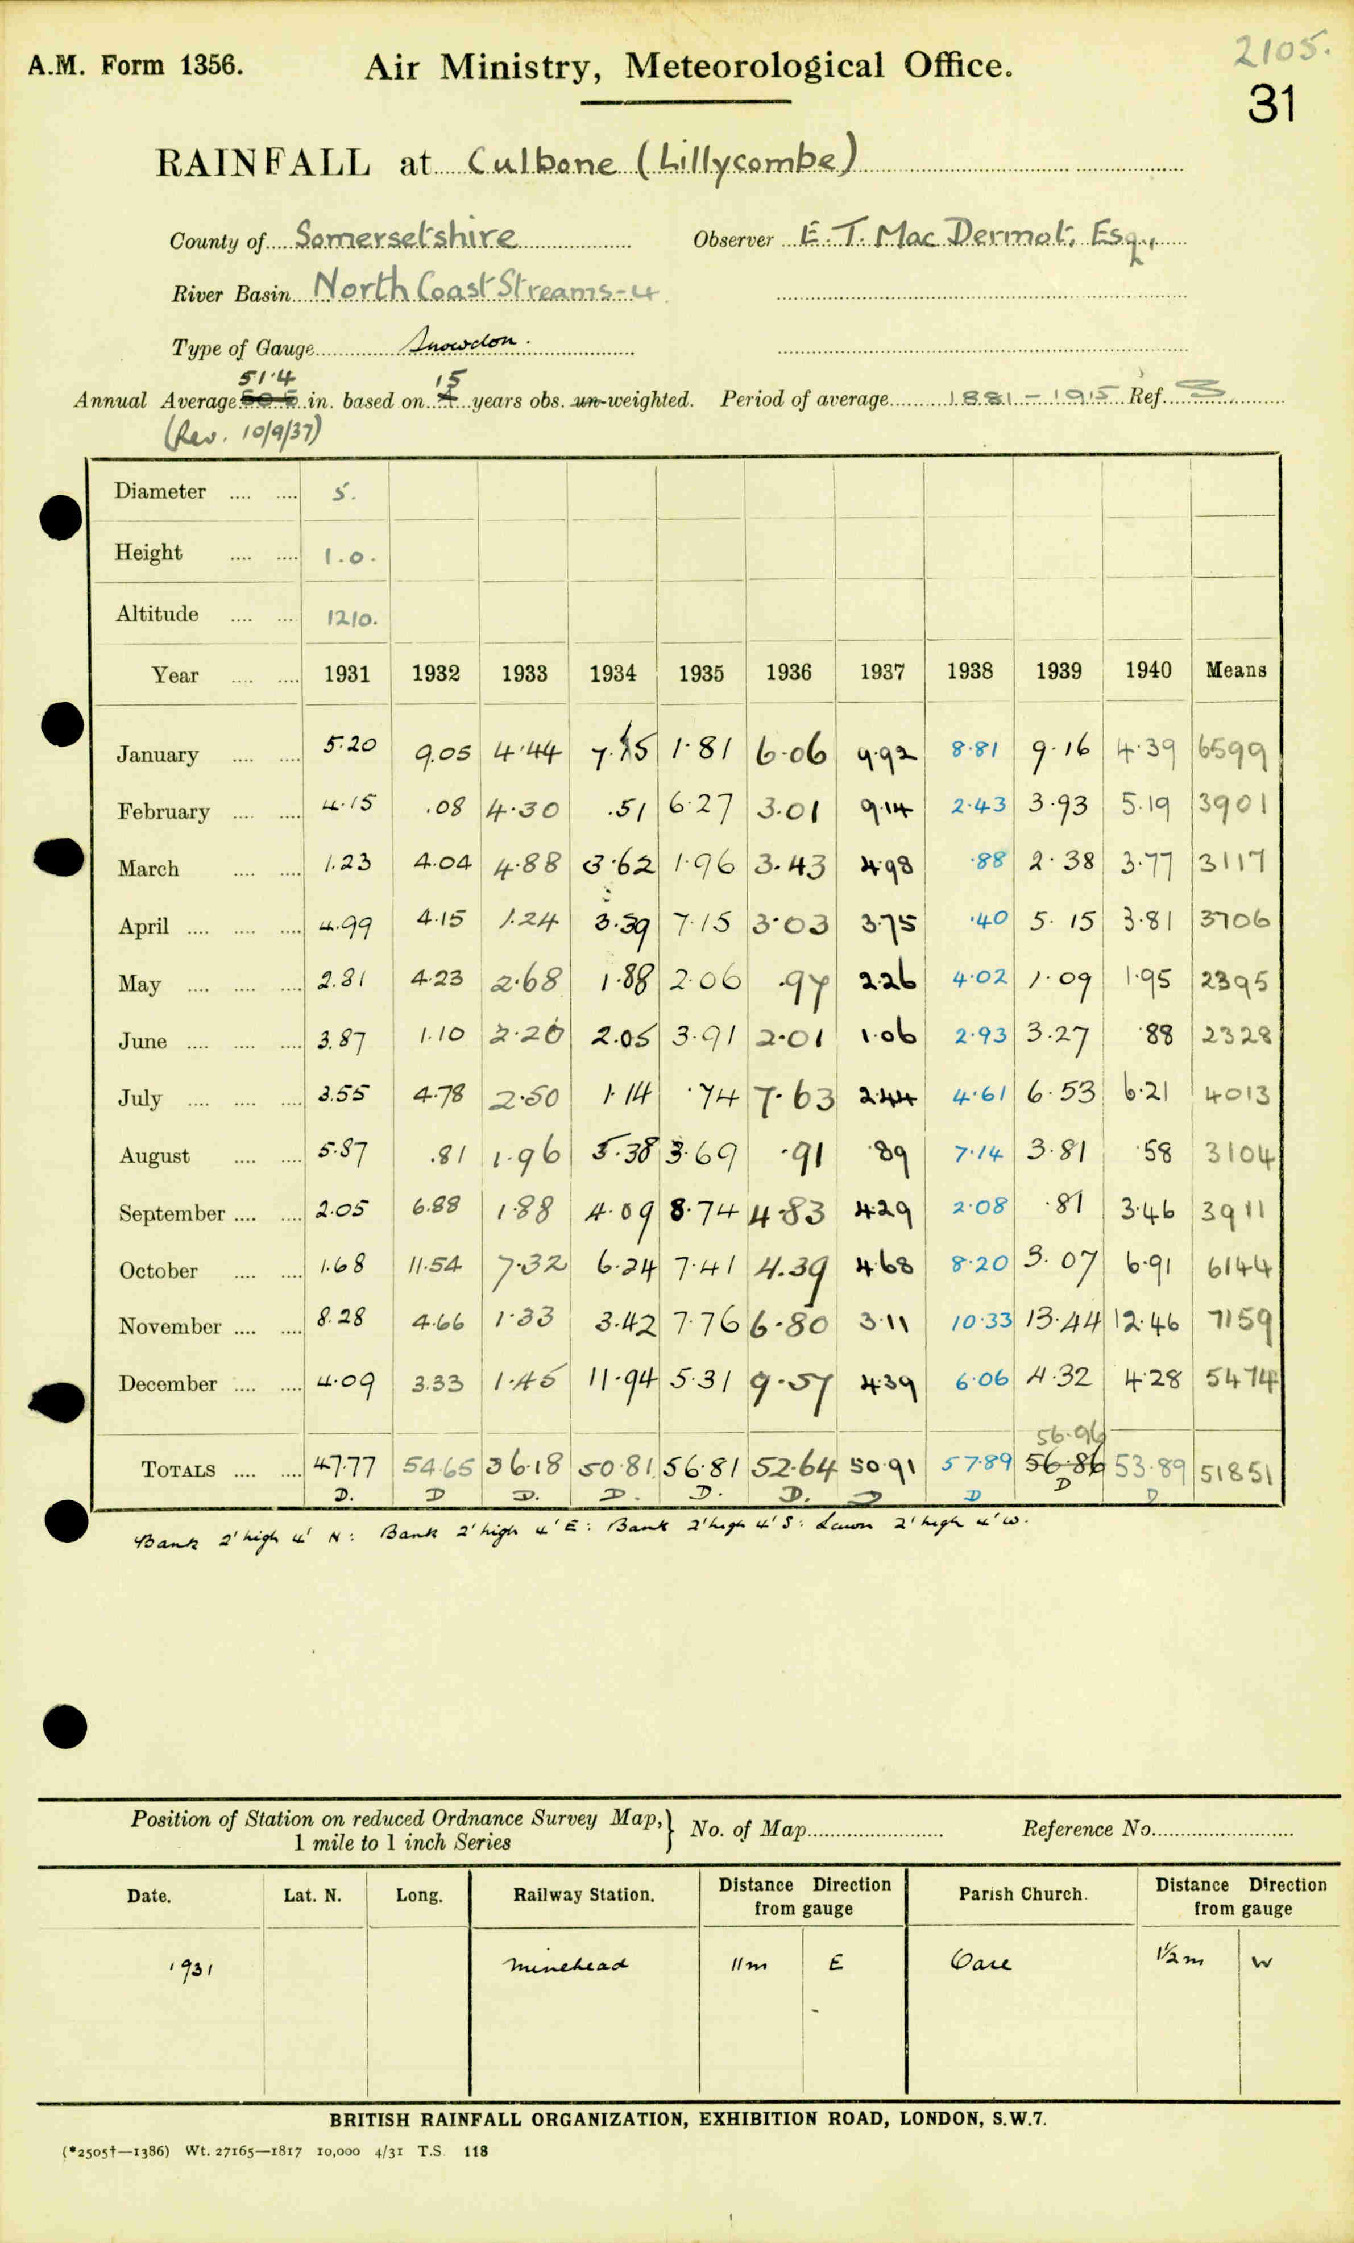 2105.
A.M. Form 1356. Air Ministry, Meteorological Office.
31
RAINFALL at Culbone (Lillycombe)
County of Somersetshire Observer E. T. Mac Dermot, Esq.,
River Basin North Coast Streams-4.
Type of Gauge Snowdon.
51.4 15
Annual Average 50.5 in. based on years obs. un-weighted. Period of average 1881 - 1915 Ref. S
(Rev. 10/9/37)
Diameter .... .... 5.
Height .... .... 1.0.
Altitude .... .... 1210.
Year .... .... 1931 1932 1933 1934 1935 1936 1937 1938 1939 1940 Means
January .... .... 5.20 9.05 4.44 7.15 1.81 6.06 9.92 8.81 9.16 4.39 6599
February .... .... 4.15 .08 4.30 .51 6.27 3.01 9.14 2.43 3.93 5.19 3901
March .... .... 1.23 4.04 4.88 3.62 1.96 3.43 4.98 .88 2.38 3.77 3117
April .... .... .... 4.99 4.15 1.24 3.39 7.15 3.03 3.75 .40 5.15 3.81 3706
May .... .... .... 2.81 4.23 2.68 1.88 2.06 .97 2.26 4.02 1.09 1.95 2395
June .... .... .... 3.87 1.10 2.20 2.05 3.91 2.01 1.06 2.93 3.27 .88 2328
July .... .... .... 3.55 4.78 2.50 1.14 .74 7.63 2.44 4.61 6.53 6.21 4013
August .... .... 5.87 .81 1.96 5.38 3.69 .91 .89 7.14 3.81 .58 3104
September .... .... 2.05 6.88 1.88 4.09 8.74 4.83 4.29 2.08 .81 3.46 3911
October .... .... 1.68 11.54 7.32 6.24 7.41 4.39 4.68 8.20 3.07 6.91 6144
November .... .... 8.28 4.66 1.33 3.42 7.76 6.80 3.11 10.33 13.44 12.46 7159
December .... .... 4.09 3.33 1.45 11.94 5.31 9.57 4.39 6.06 4.32 4.28 5474
56.96
TOTALS .... .... 47.77 54.65 36.18 50.81 56.81 52.64 50.91 57.89 56.86 53.89 51851
D. D D. D. D. D. D D D D
Bank 2' high 4' N: Bank 2' high 4' E: Bank 2' high 4' S: Lawn 2' high 4' W.
Position of Station on reduced Ordnance Survey Map,} No. of Map Reference No.
1 mile to 1 inch Series
Date. Lat. N. Long. Railway Station. Distance Direction from gauge Parish Church. Distance Direction from gauge
1931 Minehead 11m E Oare 1½m W
BRITISH RAINFALL ORGANIZATION, EXHIBITION ROAD, LONDON, S.W.7.
(*2505†—1386) Wt. 27165—1817 10,000 4/31 T.S. 118